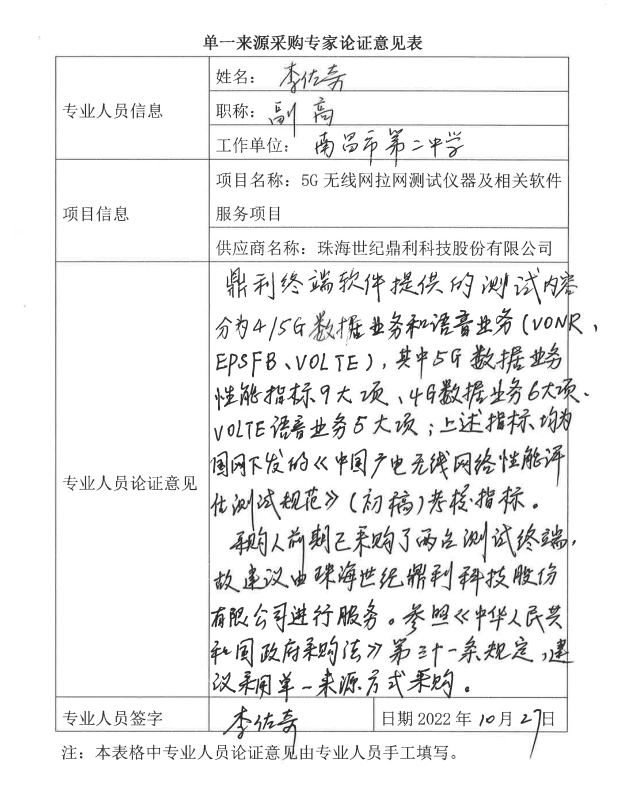 单一来源采购专家论证意见表
专业人员信息
姓名： 李佐奇
职称： 副高
工作单位： 南昌市第二中学
项目信息
项目名称：5G 无线网拉网测试仪器及相关软件
服务项目
供应商名称：珠海世纪鼎利科技股份有限公司
专业人员论证意见
鼎利终端软件提供的测试内容
分为4/5G数据业务和语音业务(VONR、
EPSFB、VOLTE)，其中5G数据业务
性能指标9大项、4G数据业务6大项、
VOLTE语音业务5大项；上述指标均为
国网下发的《中国广电无线网络性能评
估测试规范》(初稿)考核指标。
采购人前期已采购了两台测试终端，
故建议由珠海世纪鼎利科技股份
有限公司进行服务。参照《中华人民共
和国政府采购法》第三十一条规定，建
议采用单一来源方式采购。
专业人员签字
李佐奇
日期 2022 年 10 月 27 日
注：本表格中专业人员论证意见由专业人员手工填写。